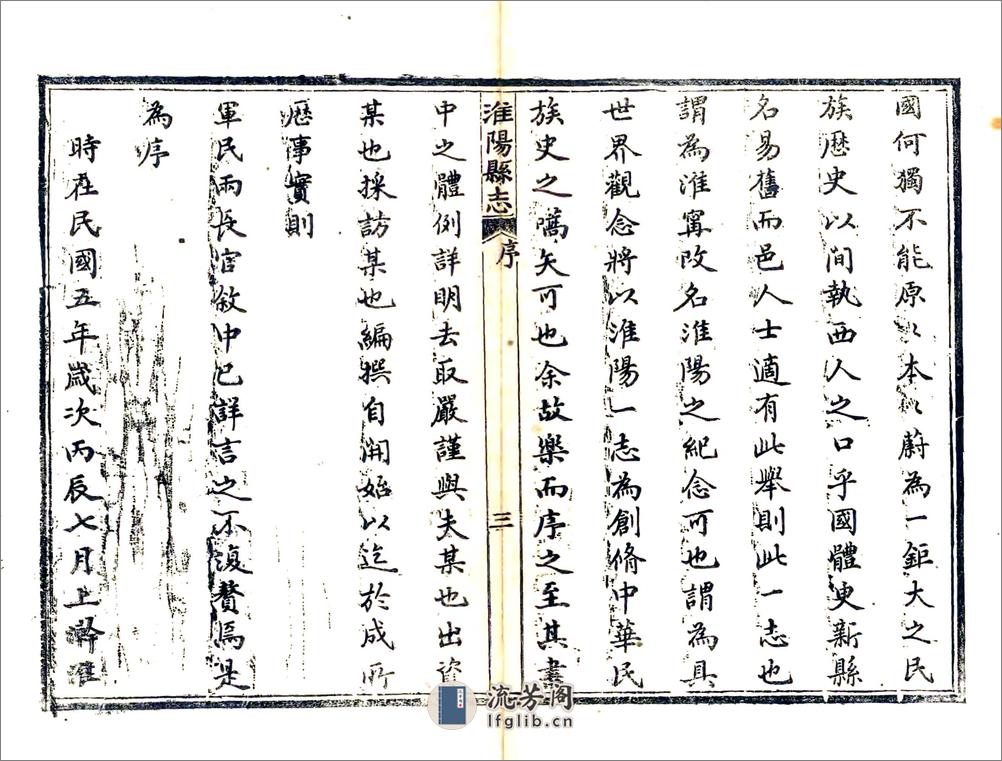 國何獨不能原以本以蔚為一鉅大之民
族歷史以間執西人之口乎國體更新縣
名易舊而邑人士適有此舉則此一志也
謂為淮寧改名淮陽之紀念可也謂為具
世界觀念將以淮陽一志為創脩中華民
族史之嚆矢可也余故樂而序之至其書
淮陽縣志
序
三
中之體例詳明去取嚴謹與夫某也出資
某也採訪某也編撰自開始以迄於成所
歷事實則
軍民兩長官敘中已詳言之不復贅焉是
為序
時在民國五年歲次丙辰七月上澣淮
流芳阁
lfglib.cn